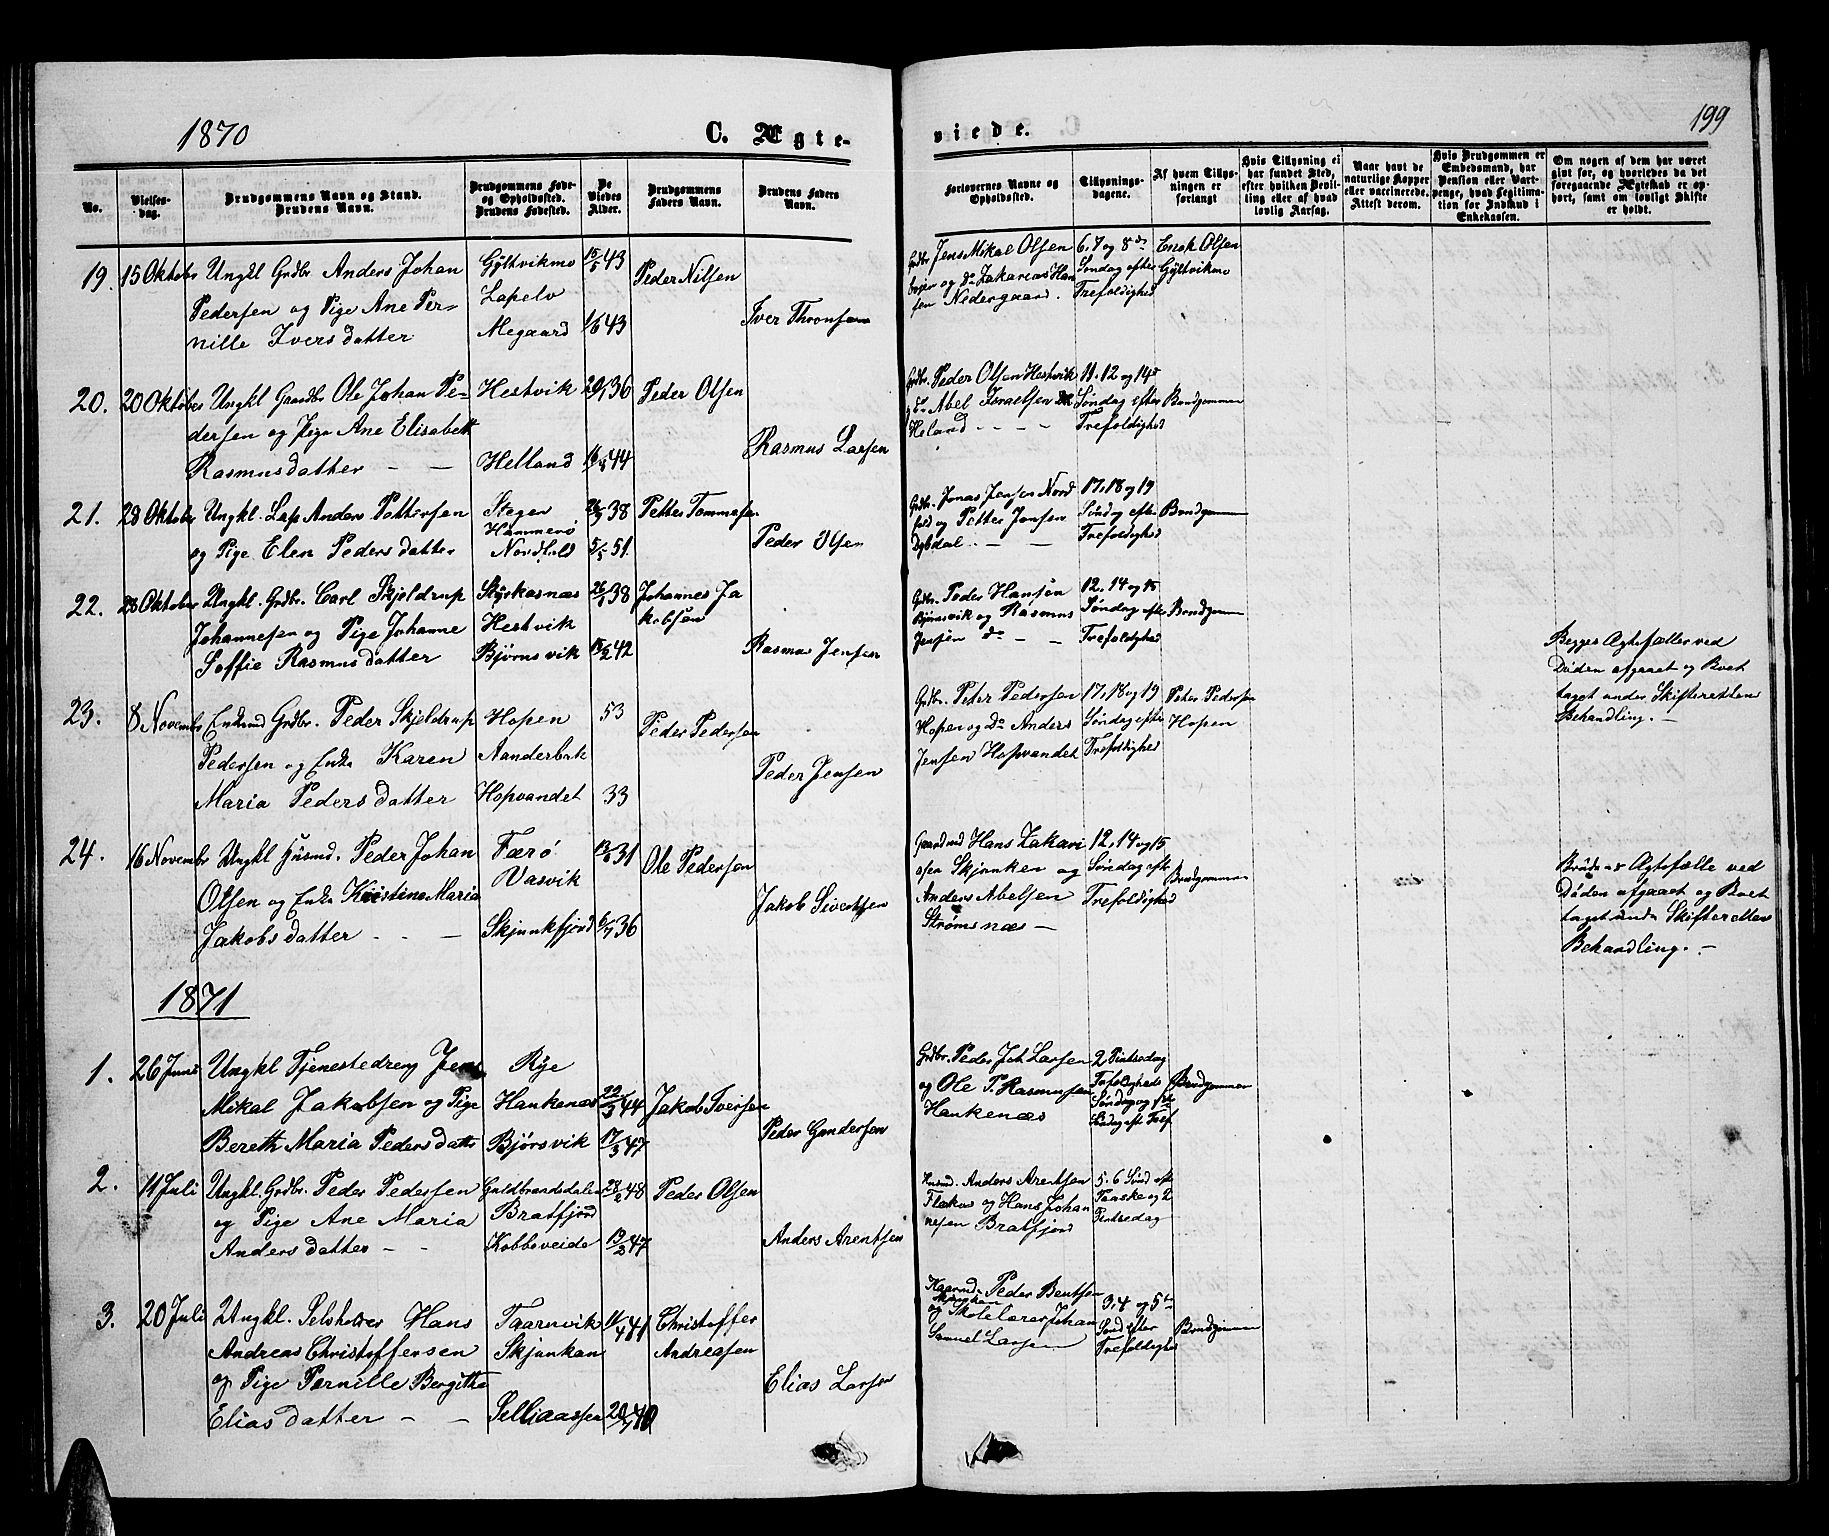 1870
C. Ægte-
viede.
199
No.
Vielses-
dag.
Brudgommens Navn og Stand.
Brudens Navn.
Brudgommens Føde-
og Opholdssted.
Brudens Fødested.
De
Viedes
Alder.
Brudgommens
Faders Navn.
Brudens Faders
Navn.
Forlovernes Navne og
Opholdssted.
Tillysnings-
dagene.
Af hvem Tillys-
ningen er
forlangt
Hvis Tillysning ei
har fundet Sted,
efter hvilken Bevil-
ling eller af hvad
lovlig Aarsag.
Naar havt de
naturlige Kopper
eller vaccinerede.
Attest derom.
Hvis Brudgommen er
Embedsmand, har
Pension eller Vart-
penge, hvad Legitima-
tion for Indskud i
Enkekassen.
Om nogen af dem har været
gift før, og hvorledes da det
foregaaende Ægteskab er op-
hørt, samt om lovligt Skifte
er holdt.
19. 15 Oktober Ungkl Grdbr. Anders Johan
Pedersen og Pige Ane Per-
nille Iversdatter
Gyltvikmo
Lapelv
Megaard
15/5 43
1/6 43
Peder Nilsen
Iver Thronsen
Grdbr Jens Mikal Olsen
og Do Zakarias Han
sen Nedergaard.
6. 7 og 8de
Søndag efter
Trefoldighed
Enok Olsen
Gyltvikmo
20. 20 Oktober Ungkl Gaardbr Ole Johan Pe-
dersen og Pige Ane Elisabeth
Rasmusdatter - -
Hestvik
Helland
36
44
Peder Olsen
Rasmus Larsen
Grdbr. Peder Olsen Hestvik
Abel Israelsen
Heland - - - -
11. 12 og 14de
Søndag efter
Trefoldighed
Brudgommen
21. 28 Oktober Ungkl. Lap Anders Pettersen
og Pige Elen Pedersdatter
Stegen
Hammerø
Nordfold
38
5/5 51.
Petter Tommesen
Peder Olsen
Grdbr. Jonas Jensen Nord
fold og Petter Jensen
Dybdal - -
17, 18 og 19
Søndag efter
Trefoldighed
Brudgommen
22. 28 Oktober Ungkl. Grdbr. Carl Skjeldrup
Johannesen og Pige Johanne
Soffie Rasmusdatter
Styrkesnæs
Hestvik
Bjørnsvik
38
42
Johannes Ja
kobsen
Rasmus Jensen
Grdbr. Peder Hansen
Bjørnsvik og Rasmus
Jensen do - -
12. 14 og 15
Søndag efter
Trefoldighed
Brudgommen
23. 8 Novembr Enkmd Grdbr. Peder Skjeldrup
Pedersen og Enke Karen
Maria Pedersdatter
Hopen
Aanderbak
Hopvandet
53
33
Peder Pedersen
Peder Jensen
Grdbr. Peter Pedersen
Hopen og Do Anders
Jensen Hopvandet
17, 18 og 19
Søndag efter
Trefoldighed
Peter Pedersen
Hopen
Begges Ægtefæller ved
Døden afgaaet og Boet
taget under Skifterettens
Behandling. -
24. 16 Novembr Ungkl Husmd. Peder Johan
Olsen og Enke Kristine Maria
Jakobsdatter - - -
Færø
Vasvik
Skjunkfjord
31
6/7 36
Ole Pedersen
Jakob Sivertsen
Gaardmd Hans Zakari
asen Skjunken og
Anders Abelsen
Strømsnæs -
12, 14 og 15
Søndag eft
Trefoldighed
Brudgommen
Brudens Ægtefælle ved
Døden afgaaet og Boet
taget under Skifterettens
Behandling. -
1871
1. 26 Juni Ungkl Tjenestedreng Jens
Mikal Jakobsen og Pige
Bereth Maria Pedersdattr
Rye
Hankenæs
Bjørsvik
22/3 44
17/3 47
Jakob Iversen
Peder Gundersen
Grdbr. Peder Joh Larsen
og Ole P. Rasmussen
Hankenæs
2 Pintsedag
Trefoldigheds
Søndag og første
Søndag eft Tref
Brudgommen
2. 11 Juli Ungkl. Grdbr. Peder Pedersen
og Pige Ane Maria
Andersdatter - -
Guldbrandsdalen
Bratfjord
Kobbeveide
28/2 48
19/2 47
Peder Olsen
Anders Arentsen
Husmd. Anders Arentsen
og Hans Johan
nesen Bratfjord
5. 6 Sønd eft
Paaske og 2
Pintsedag
3. 20 Juli Ungkl. Selsholder Hans
Andreas Christoffersen
og Pige Pernille Bergitha
Eliasdatter - -
Taarnvik
Skjunkan
11/4 41
20/7 40
Christoffer
Andreasen
Elias Larsen
Gaardmd. Peder Bentsen
Skjunken
og Skolelærer Johan
Samuel Larsen
3, 4 og 5te
Sønd efter
Trefoldighed
Brudgommen